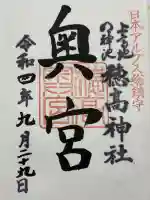 日本アルプス総鎮守
上高地
の神池
穂高神社
奥宮
令和四年九月二十九日